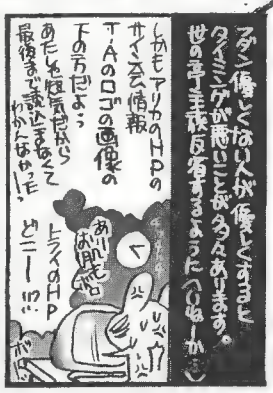 フダン優しくない人が優しくすると
タイミングが悪いことが多々あります。
世の亭主族反省するように(いねーか)
しかもアリカのHPの
サイン会情報
TAのロゴの画像の
下の方だよぅ
あたしゃ短気だから
最後まで読込まなくて
わかんなかったーっ
トライのHP
どこー!?
ありぃも
お肌ボロ
ボロ